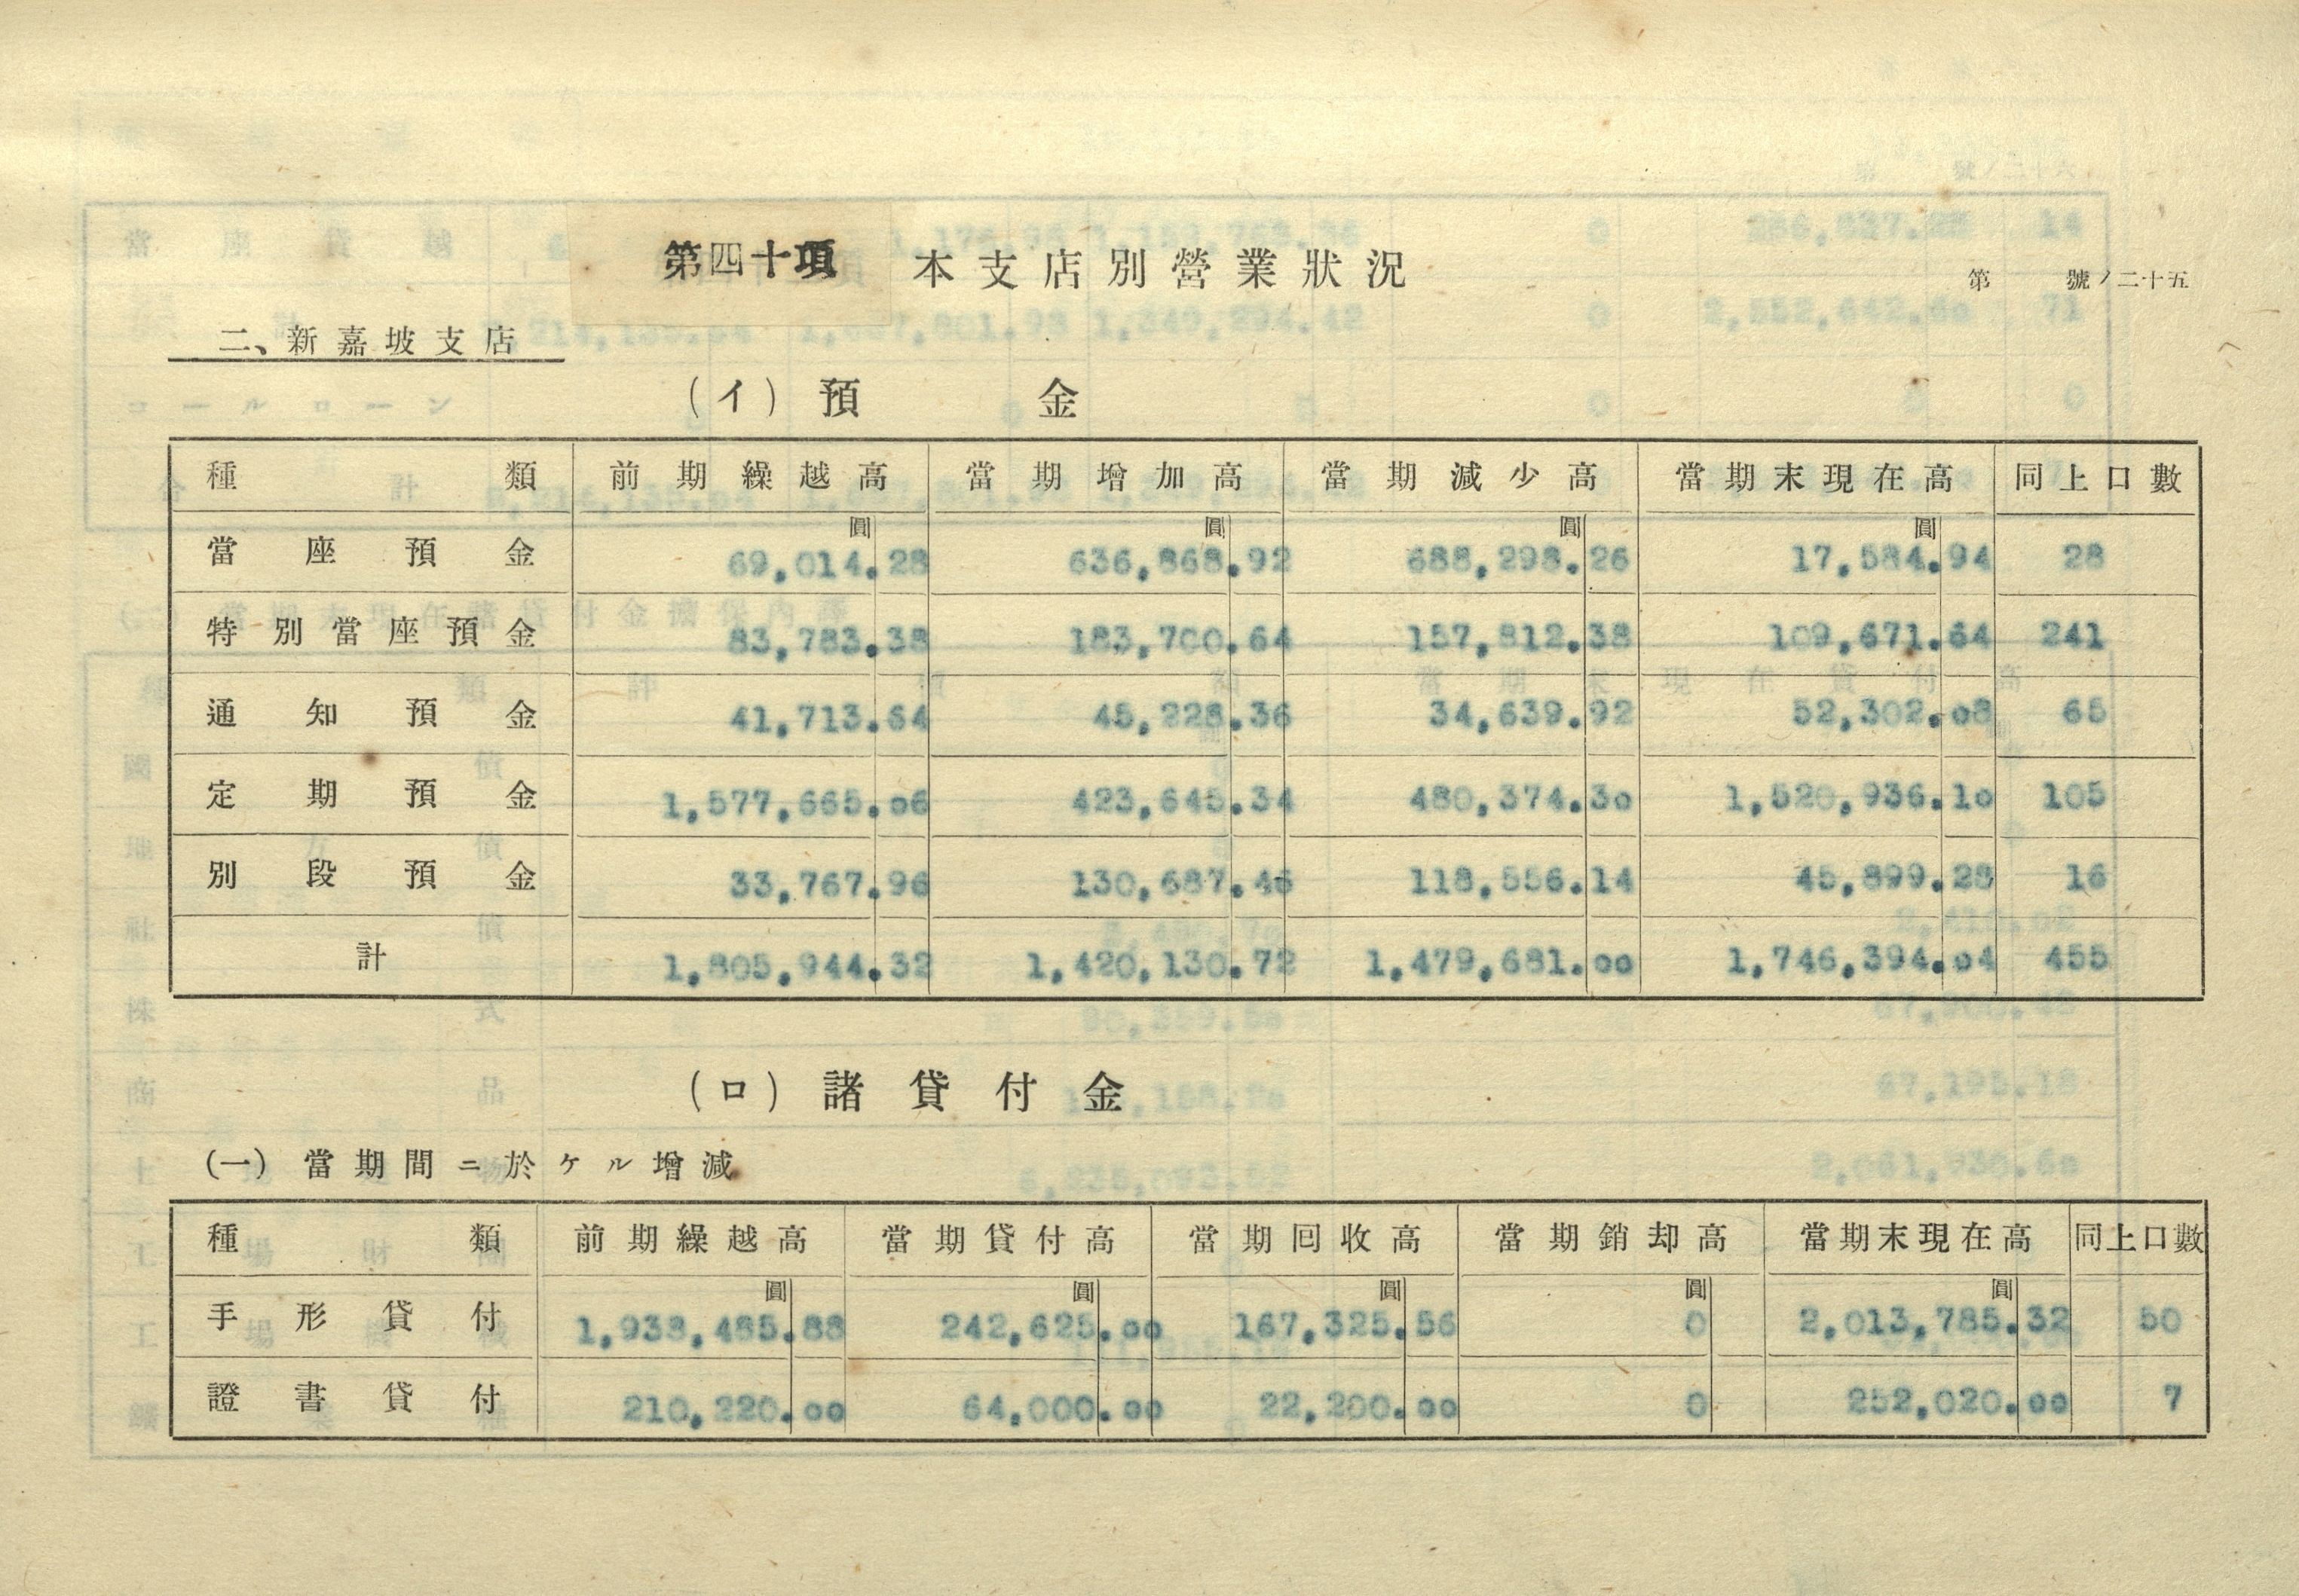 第四十項 本支店別營業狀況
第 號ノ二十五
二、新嘉坡支店
(イ) 預金
種類 前期繰越高 當期增加高 當期減少高 當期末現在高 同上口數
圓 圓 圓 圓
當座預金 69,014.28 636,868.92 688,298.26 17,584.94 28
特別當座預金 83,783.38 183,700.64 157,812.38 109,671.64 241
通知預金 41,713.64 45,228.36 34,639.92 52,302.08 65
定期預金 1,577,665.06 423,645.34 480,374.30 1,520,936.10 105
別段預金 33,767.96 130,687.46 118,556.14 45,899.28 16
計 1,805,944.32 1,420,130.72 1,479,681.00 1,746,394.04 455
(ロ) 諸貸付金
(一) 當期間ニ於ケル增減
種類 前期繰越高 當期貸付高 當期回收高 當期銷却高 當期末現在高 同上口數
圓 圓 圓 圓 圓
手形貸付 1,938,485.88 242,625.00 167,325.56 0 2,013,785.32 50
證書貸付 210,220.00 64,000.00 22,200.00 0 252,020.00 7